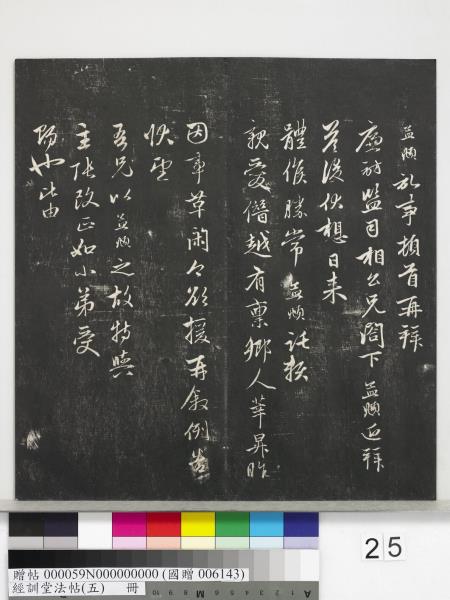 益頫頓首再拜
廉訪監司相公兄閣下益頫近拜
答後伏想日来
體候勝常益頫託賴
親愛僭越有稟鄉人華昇昨
因事草閑今欲援再叙例告
快望
吾兄以益頫之故特與
主張改正如小弟受
賜也比由
25
贈帖 000059N000000000 (國贈 006143)
經訓堂法帖(五) 冊